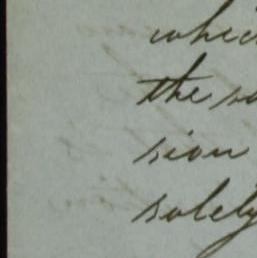 which
the sa
sion
solely